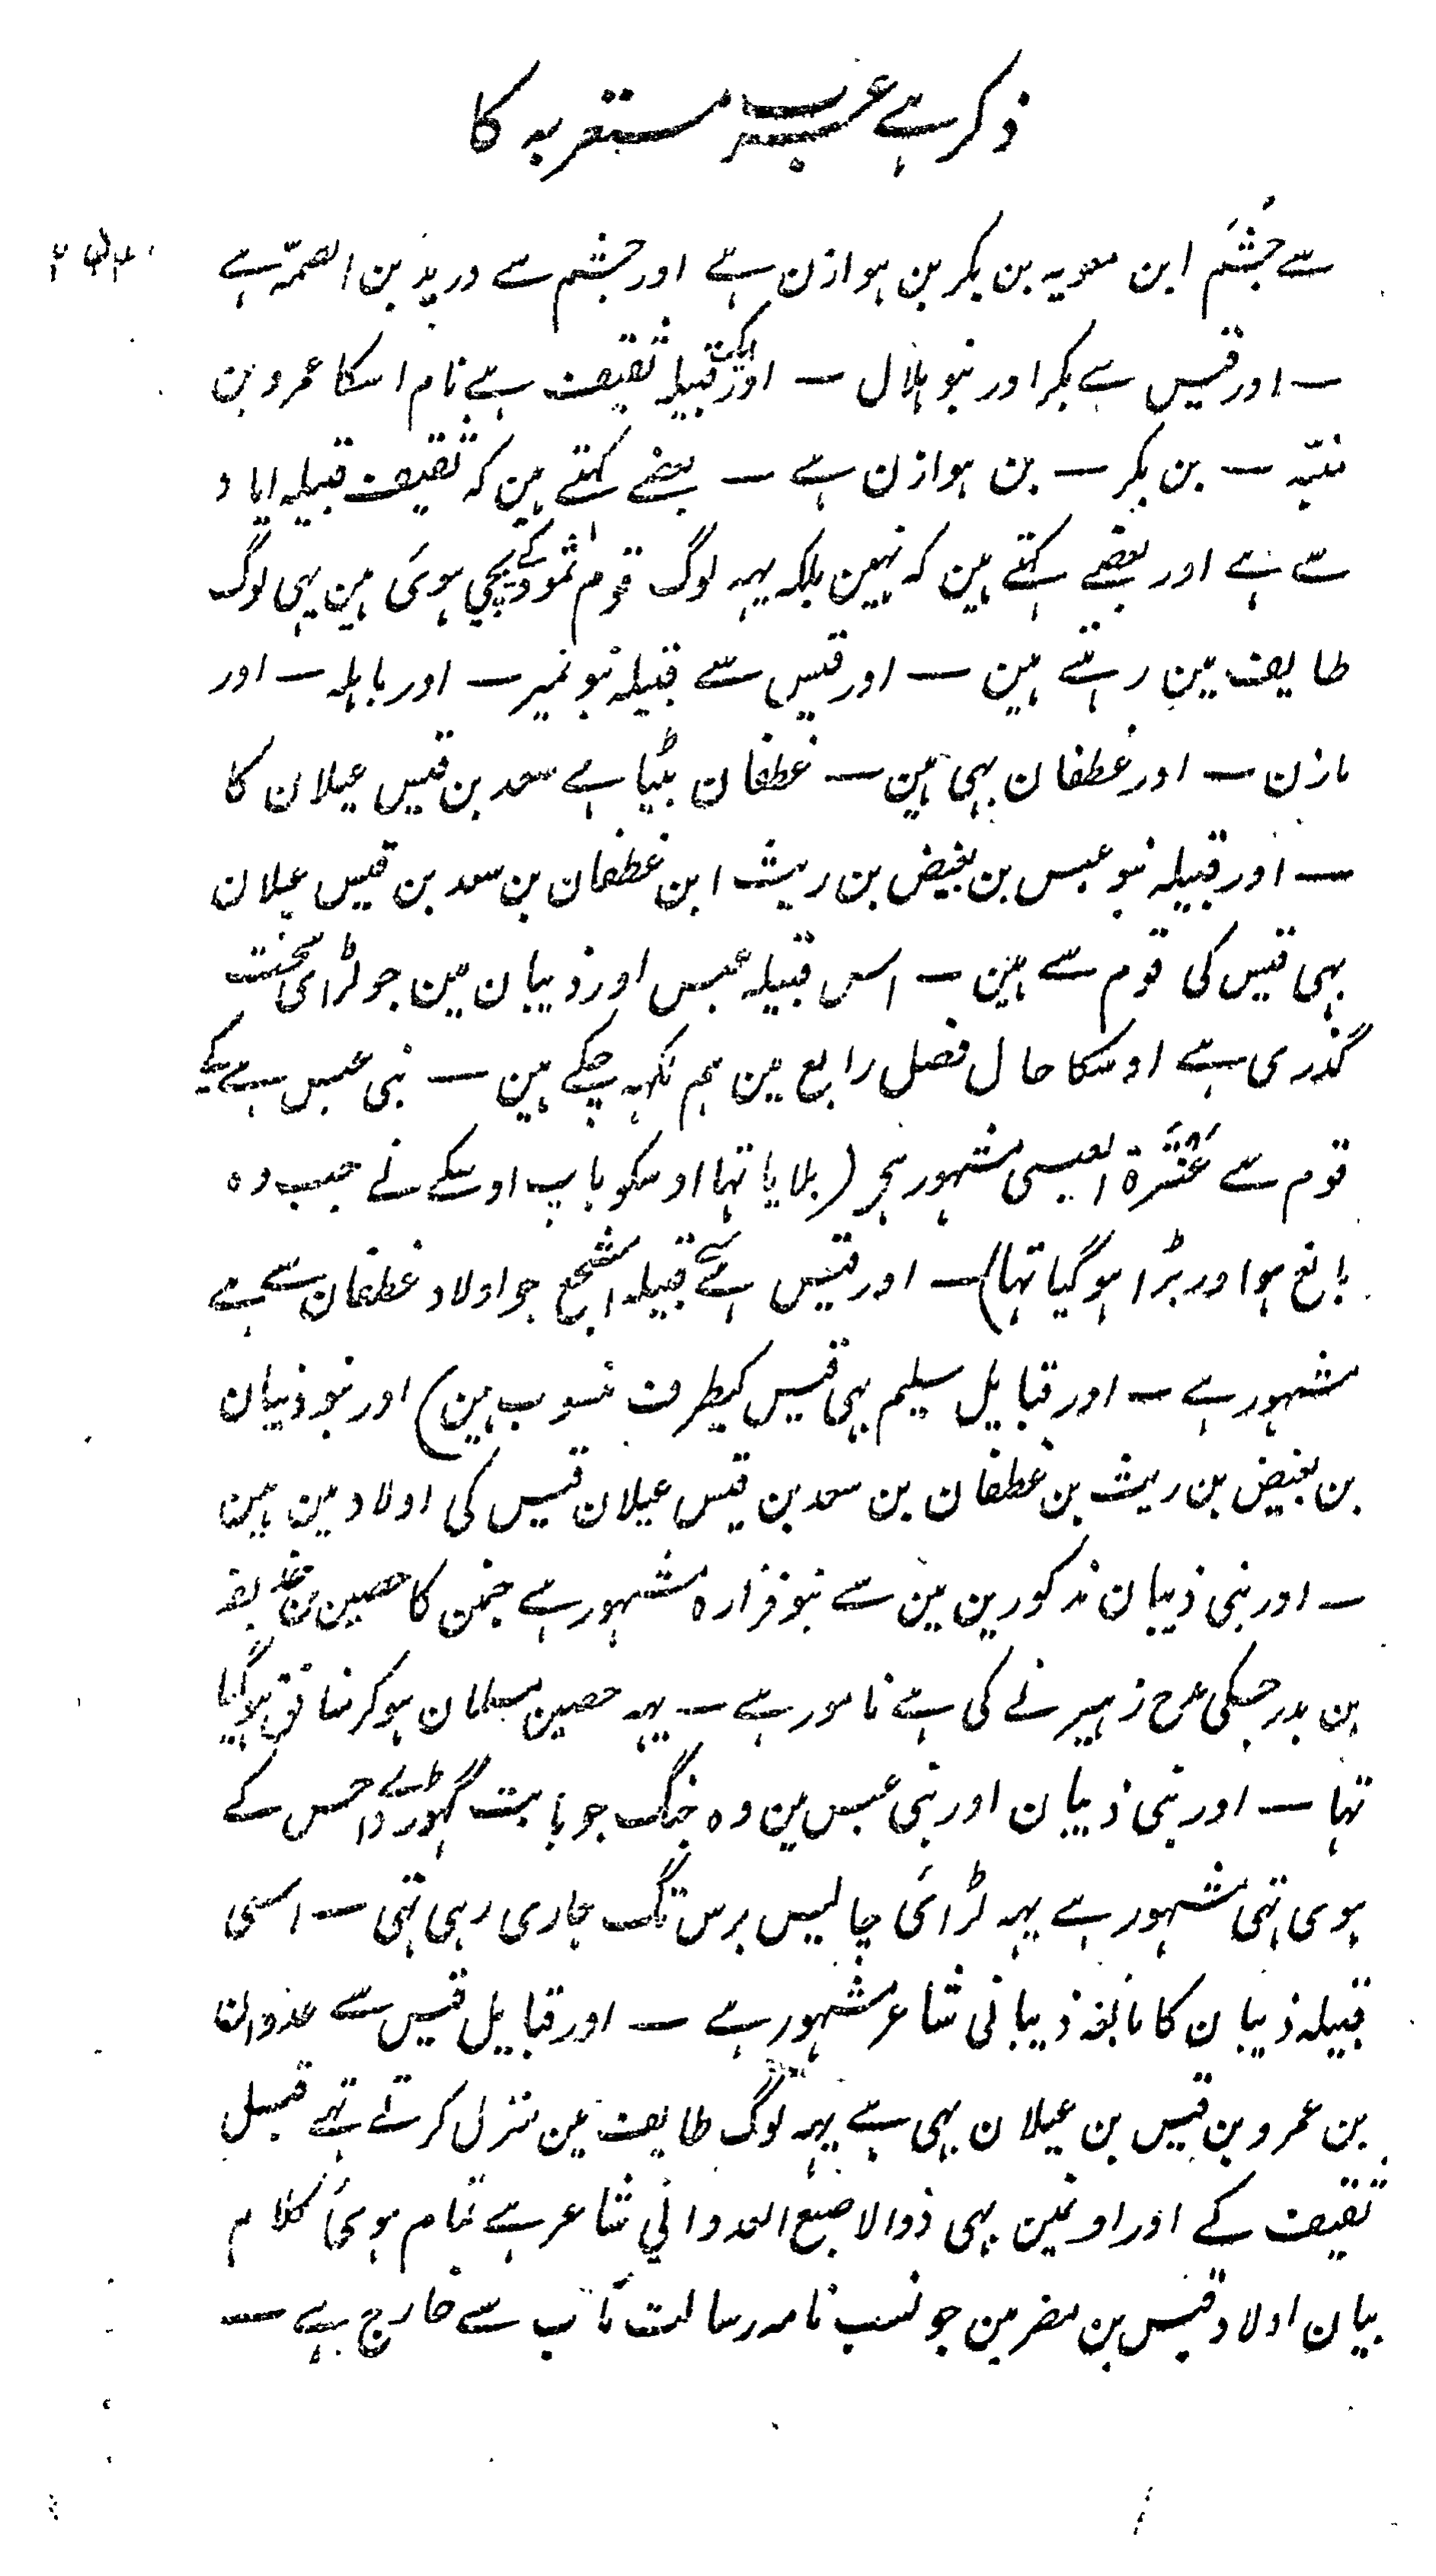 ذکر ہے عرب مستعربہ کا
سے جُشَم ابن معویہ بن بکر بن ہوازن ہے اور جشم سے درید بن الصمّہ ہے
— اور قیس سے بکر اور بنو ہلال — اور ایک قبیلہ ثقیف ہے نام اسکا عمرو بن
منبّہ — بن بکر — بن ہوازن ہے — بعضے کہتے ہین کہ ثقیف قبیلہ ایاد
سے ہے اور بعضے کہتے ہین کہ نہین بلکہ یہہ لوگ قوم ثمود کے بچی ہوئ ہین یہی لوگ
طایف مین رہتے ہین — اور قیس سے قبیلہ بنو نمیر — اور باہلہ — اور
مازن — اور غطفان بہی ہین — غطفان بٹیا ہے سعد بن قیس عیلان کا
— اور قبیلہ بنو عبس بن بغیض بن ریث ابن غطفان بن سعد بن قیس عیلان
بہی قیس کی قوم سے ہین — اس قبیلہ عبس اور ذبیان مین جو لڑای سخت
گذری ہے اوسکا حال فصل رابع مین ہم لکہہ چکے ہین — بنی عبس ہے کے
قوم سے عَنْتَرَة العبسی مشہور ہی (بلایا تہا اوسکو باپ اوسکے نے جب وہ
بالغ ہوا اور بڑا ہو گیا تہا) — اور قیس سے قبیلہ اشجع جو اولاد غطفان سے ہے
مشہور ہے — اور قبایل سلیم بہی قیس کیطرف منسوب ہین) اور بنو ذبیان
بن بغیض بن ریث بن غطفان بن سعد بن قیس عیلان قیس کی اولاد مین ہین
— اور بنی ذبیان مذکورین مین سے بنو فزارہ مشہور ہے جنمن کا حصین بن حذیفہ
بن بدر جسکی مدح زہیر نے کی ہے نامور ہے — یہہ حصین مسلمان ہو کر منافق ہوگیا
تہا — اور بنی ذبیان اور بنی عبس مین وہ جنگ جو بابت گہوڑے داحس کے
ہوی تہی مشہور ہے یہہ لڑائی چالیس برس تگ جاری رہی تہی — اسی
قبیلہ ذبیان کا نابغہ ذبیانی شاعر مشہور ہے — اور قبایل قیس سے عدوان
بن عمرو بن قیس بن عیلان بہی ہے یہہ لوگ طایف مین منزل کرتے تہے قبل
ثقیف کے اور اونمین بہی ذوالاصبع العدوانی شاعر ہے تمام ہوئ کلام
بیان اولاد قیس بن مضر مین جو نسب نامہ رسالت مآب سے خارج ہے —